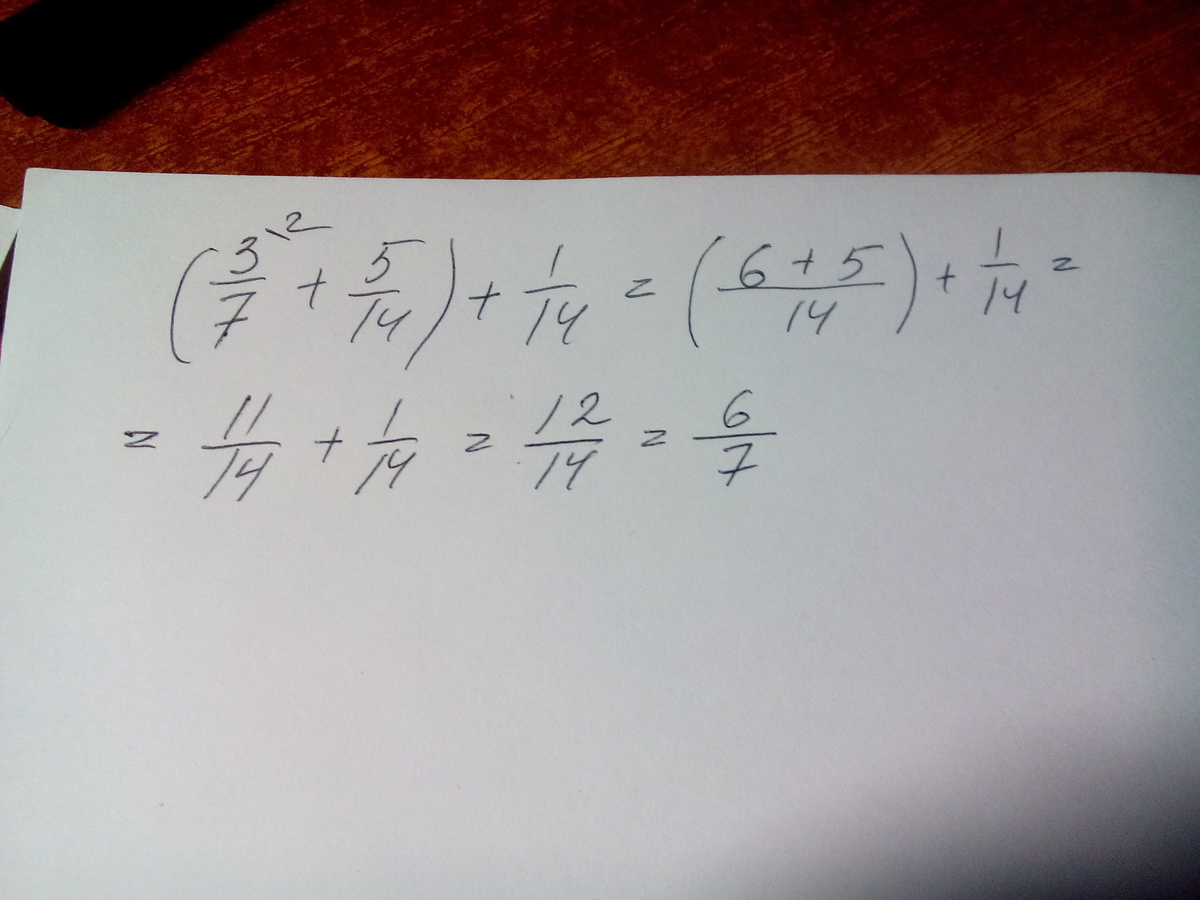 (3/7 \2 + 5/14) + 1/14 = (6 + 5/14) + 1/14 =
= 11/14 + 1/14 = 12/14 = 6/7